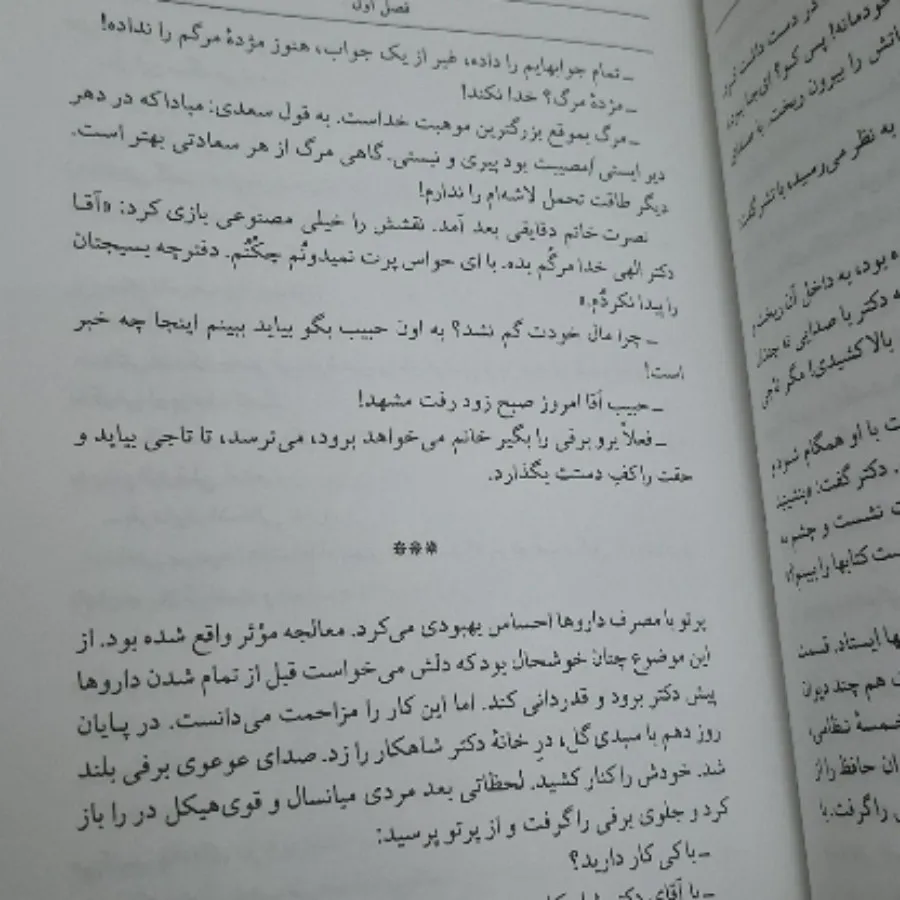 فصل اول
ـ تمام جوابهایم را داده، غیر از یک جواب، هنوز مژدهٔ مرگم را نداده!
ـ مژدهٔ مرگ؟ خدا نکند!
ـ مرگ بموقع بزرگترین موهبت خداست. به قول سعدی: مبادا که در دهر
دیر ایستی /مصیبت بود پیری و نیستی. گاهی مرگ از هر سعادتی بهتر است.
دیگر طاقت تحمل لاشه‌ام را ندارم!
نصرت خانم دقایقی بعد آمد. نقشش را خیلی مصنوعی بازی کرد: «آقا
دکتر الهی خدا مرگُم بده. با ای حواس پرت نمیدونُم چکُنُم. دفترچه بسیجتان
را پیدا نکردُم.»
ـ چرا مال خودت گم نشد؟ به اون حبیب بگو بیاید ببینم اینجا چه خبر
است!
ـ حبیب آقا امروز صبح زود رفت مشهد!
ـ فعلاً برو برفی را بگیر خانم می‌خواهد برود، می‌ترسد، تا تاجی بیاید و
حقت را کف دستت بگذارد.
***
پرتو با مصرف داروها احساس بهبودی می‌کرد. معالجه مؤثر واقع شده بود. از
این موضوع چنان خوشحال بود که دلش می‌خواست قبل از تمام شدن داروها
پیش دکتر برود و قدردانی کند. اما این کار را مزاحمت می‌دانست. در پایان
روز دهم با سبدی گل، درِ خانهٔ دکتر شاهکار را زد. صدای عوعوی برفی بلند
شد. خودش را کنار کشید. لحظاتی بعد مردی میانسال و قوی‌هیکل در را باز
کرد و جلوی برفی را گرفت و از پرتو پرسید:
ـ با کی کار دارید؟
ـ با آقای دکتر
در دست داشت
خودمانه! پس کو؟
را بیرون ریخت. با صدای
به نظر می‌رسید، با تشر گفت:
بود، به داخل آن ریخت و
دکتر با صدایی نه چندان
بالا کشیدی! مگر تاجی
با او همگام شد و
دکتر گفت: «بنشینید
نشست و چشم به
کتابها را ببینم!»
ایستاد. قسمت
هم چند دیوان
خمسهٔ نظامی،
حافظ را از
را گرفت. با